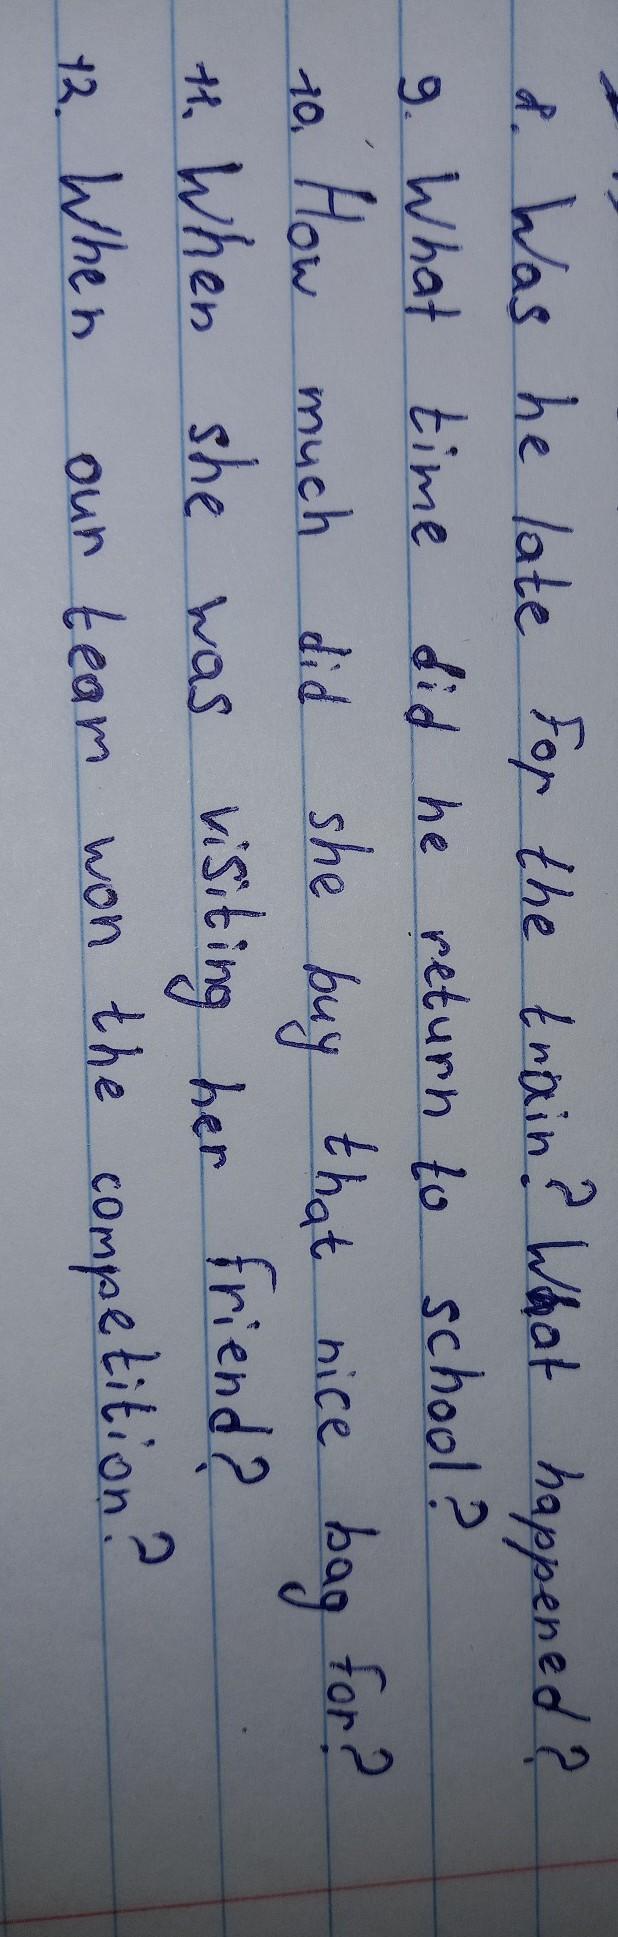 8. Was he late for the train? What happened?
9. What time did he return to school?
10. How much did she buy that nice bag for?
11. When she was visiting her friend?
12. When our team won the competition?